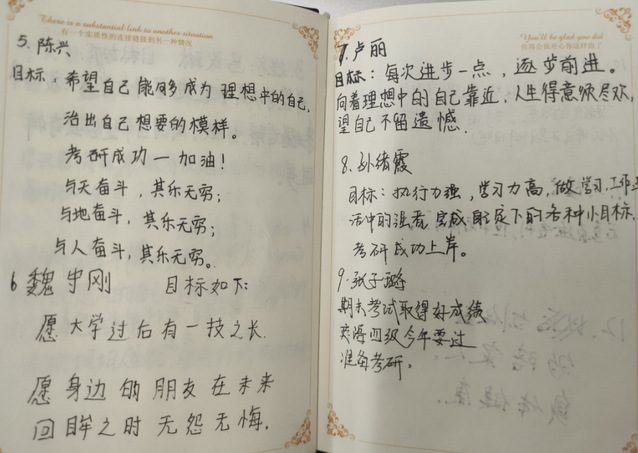 There is a substantial link to another situation
有一个实质性的连接链接到另一种情况
5. 陈兴
目标: 希望自己能够多成为理想中的自己,
活出自己想要的模样。
考研成功一加油!
与天奋斗,其乐无穷;
与地奋斗,其乐无穷;
与人奋斗,其乐无穷。
6 魏宇刚 目标如下:
愿大学过后有一技之长.
愿身边的朋友在未来
回眸之时无怨无悔.
You'll be glad you did
你将会很开心你这样做了
7. 卢丽
目标: 每次进步一点,逐步前进。
向着理想中的自己靠近,人生得意须尽欢,
望自己不留遗憾.
8. 孙绪霞
目标: 执行力强,学习力高,做学习,工作生
活中的强者,完成自底下的各种小目标,
考研成功上岸。
9. 张子璐
期末考试取得好成绩
英语四级今年要过
准备考研。